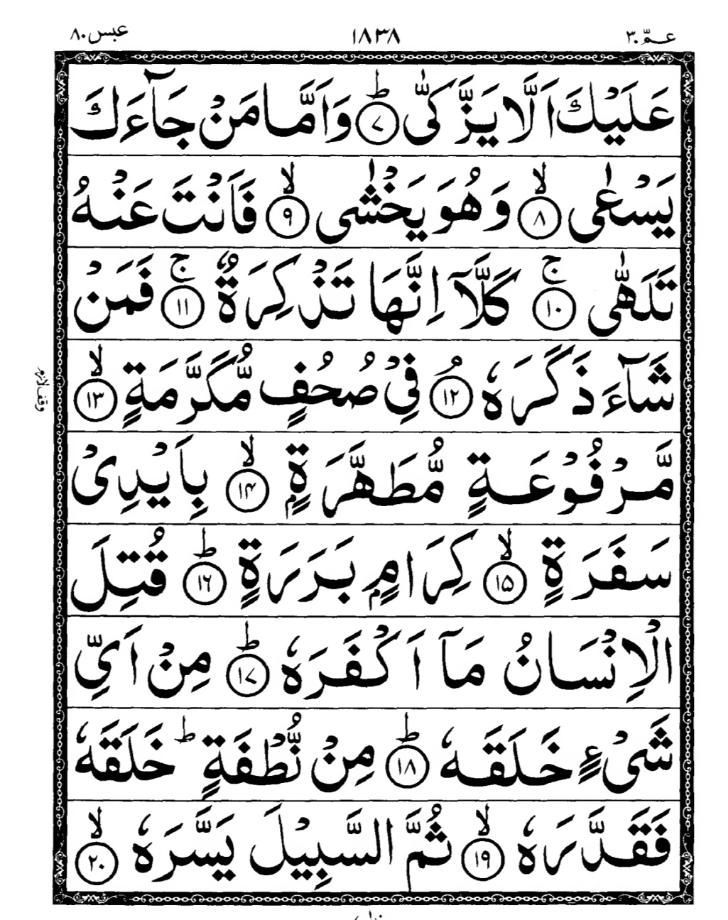 عـمّ ٣٠ ١٨٣٨ عبس ٨٠
عَلَيْكَ اَلَّا يَزَّكّٰى ؕ﴿۷﴾ وَاَمَّا مَنْ جَآءَكَ
يَسْعٰى ۙ﴿۸﴾ وَهُوَ يَخْشٰى ۙ﴿۹﴾ فَاَنْتَ عَنْهُ
تَلَهّٰى ۚ﴿۱۰﴾ كَلَّاۤ اِنَّهَا تَذْكِرَةٌ ۚ﴿۱۱﴾ فَمَنْ
شَآءَ ذَكَرَهٗ ۘ﴿۱۲﴾ فِيْ صُحُفٍ مُّكَرَّمَةٍ ۙ﴿۱۳﴾
وقف لازم
مَّرْفُوْعَةٍ مُّطَهَّرَةٍۭ ۙ﴿۱۴﴾ بِاَيْدِيْ
سَفَرَةٍ ۙ﴿۱۵﴾ كِرَامٍۭ بَرَرَةٍ ؕ﴿۱۶﴾ قُتِلَ
الْاِنْسَانُ مَاۤ اَكْفَرَهٗ ؕ﴿۱۷﴾ مِنْ اَيِّ
شَيْءٍ خَلَقَهٗ ؕ﴿۱۸﴾ مِنْ نُّطْفَةٍ ؕ خَلَقَهٗ
فَقَدَّرَهٗ ۙ﴿۱۹﴾ ثُمَّ السَّبِيْلَ يَسَّرَهٗ ۙ﴿۲۰﴾